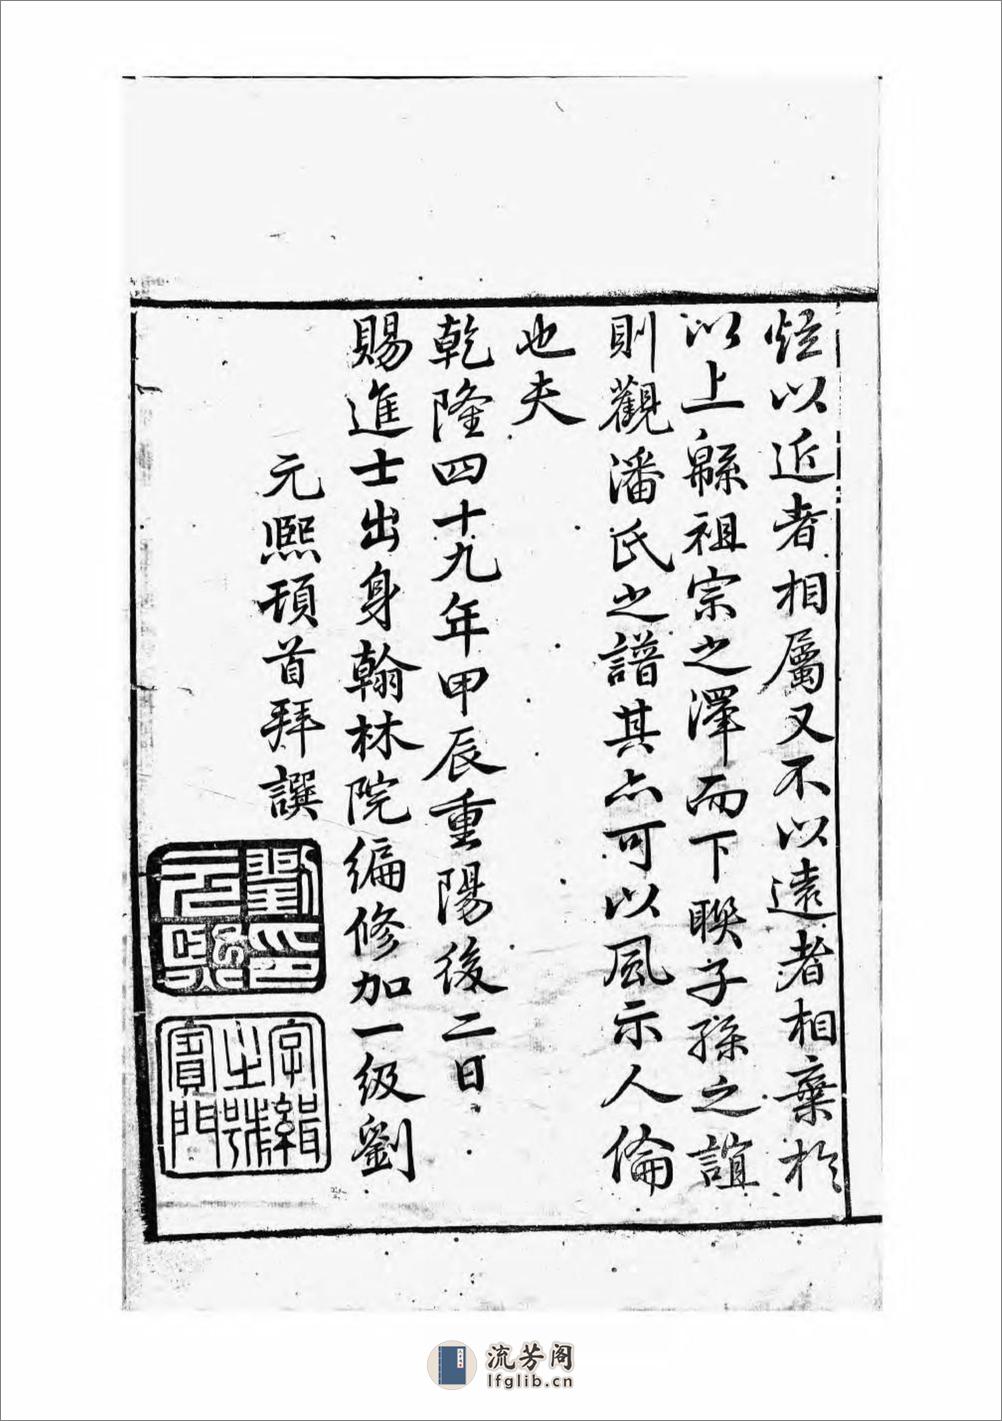 竝以近者相屬又不以遠者相棄於
以上緜祖宗之澤而下聯子孫之誼
則觀潘氏之譜其亦可以風示人倫
也夫
乾隆四十九年甲辰重陽後二日
賜進士出身翰林院編修加一級劉
元熙頓首拜譔
劉印元熙
字緝之號賓門
流芳阁
lfglib.cn